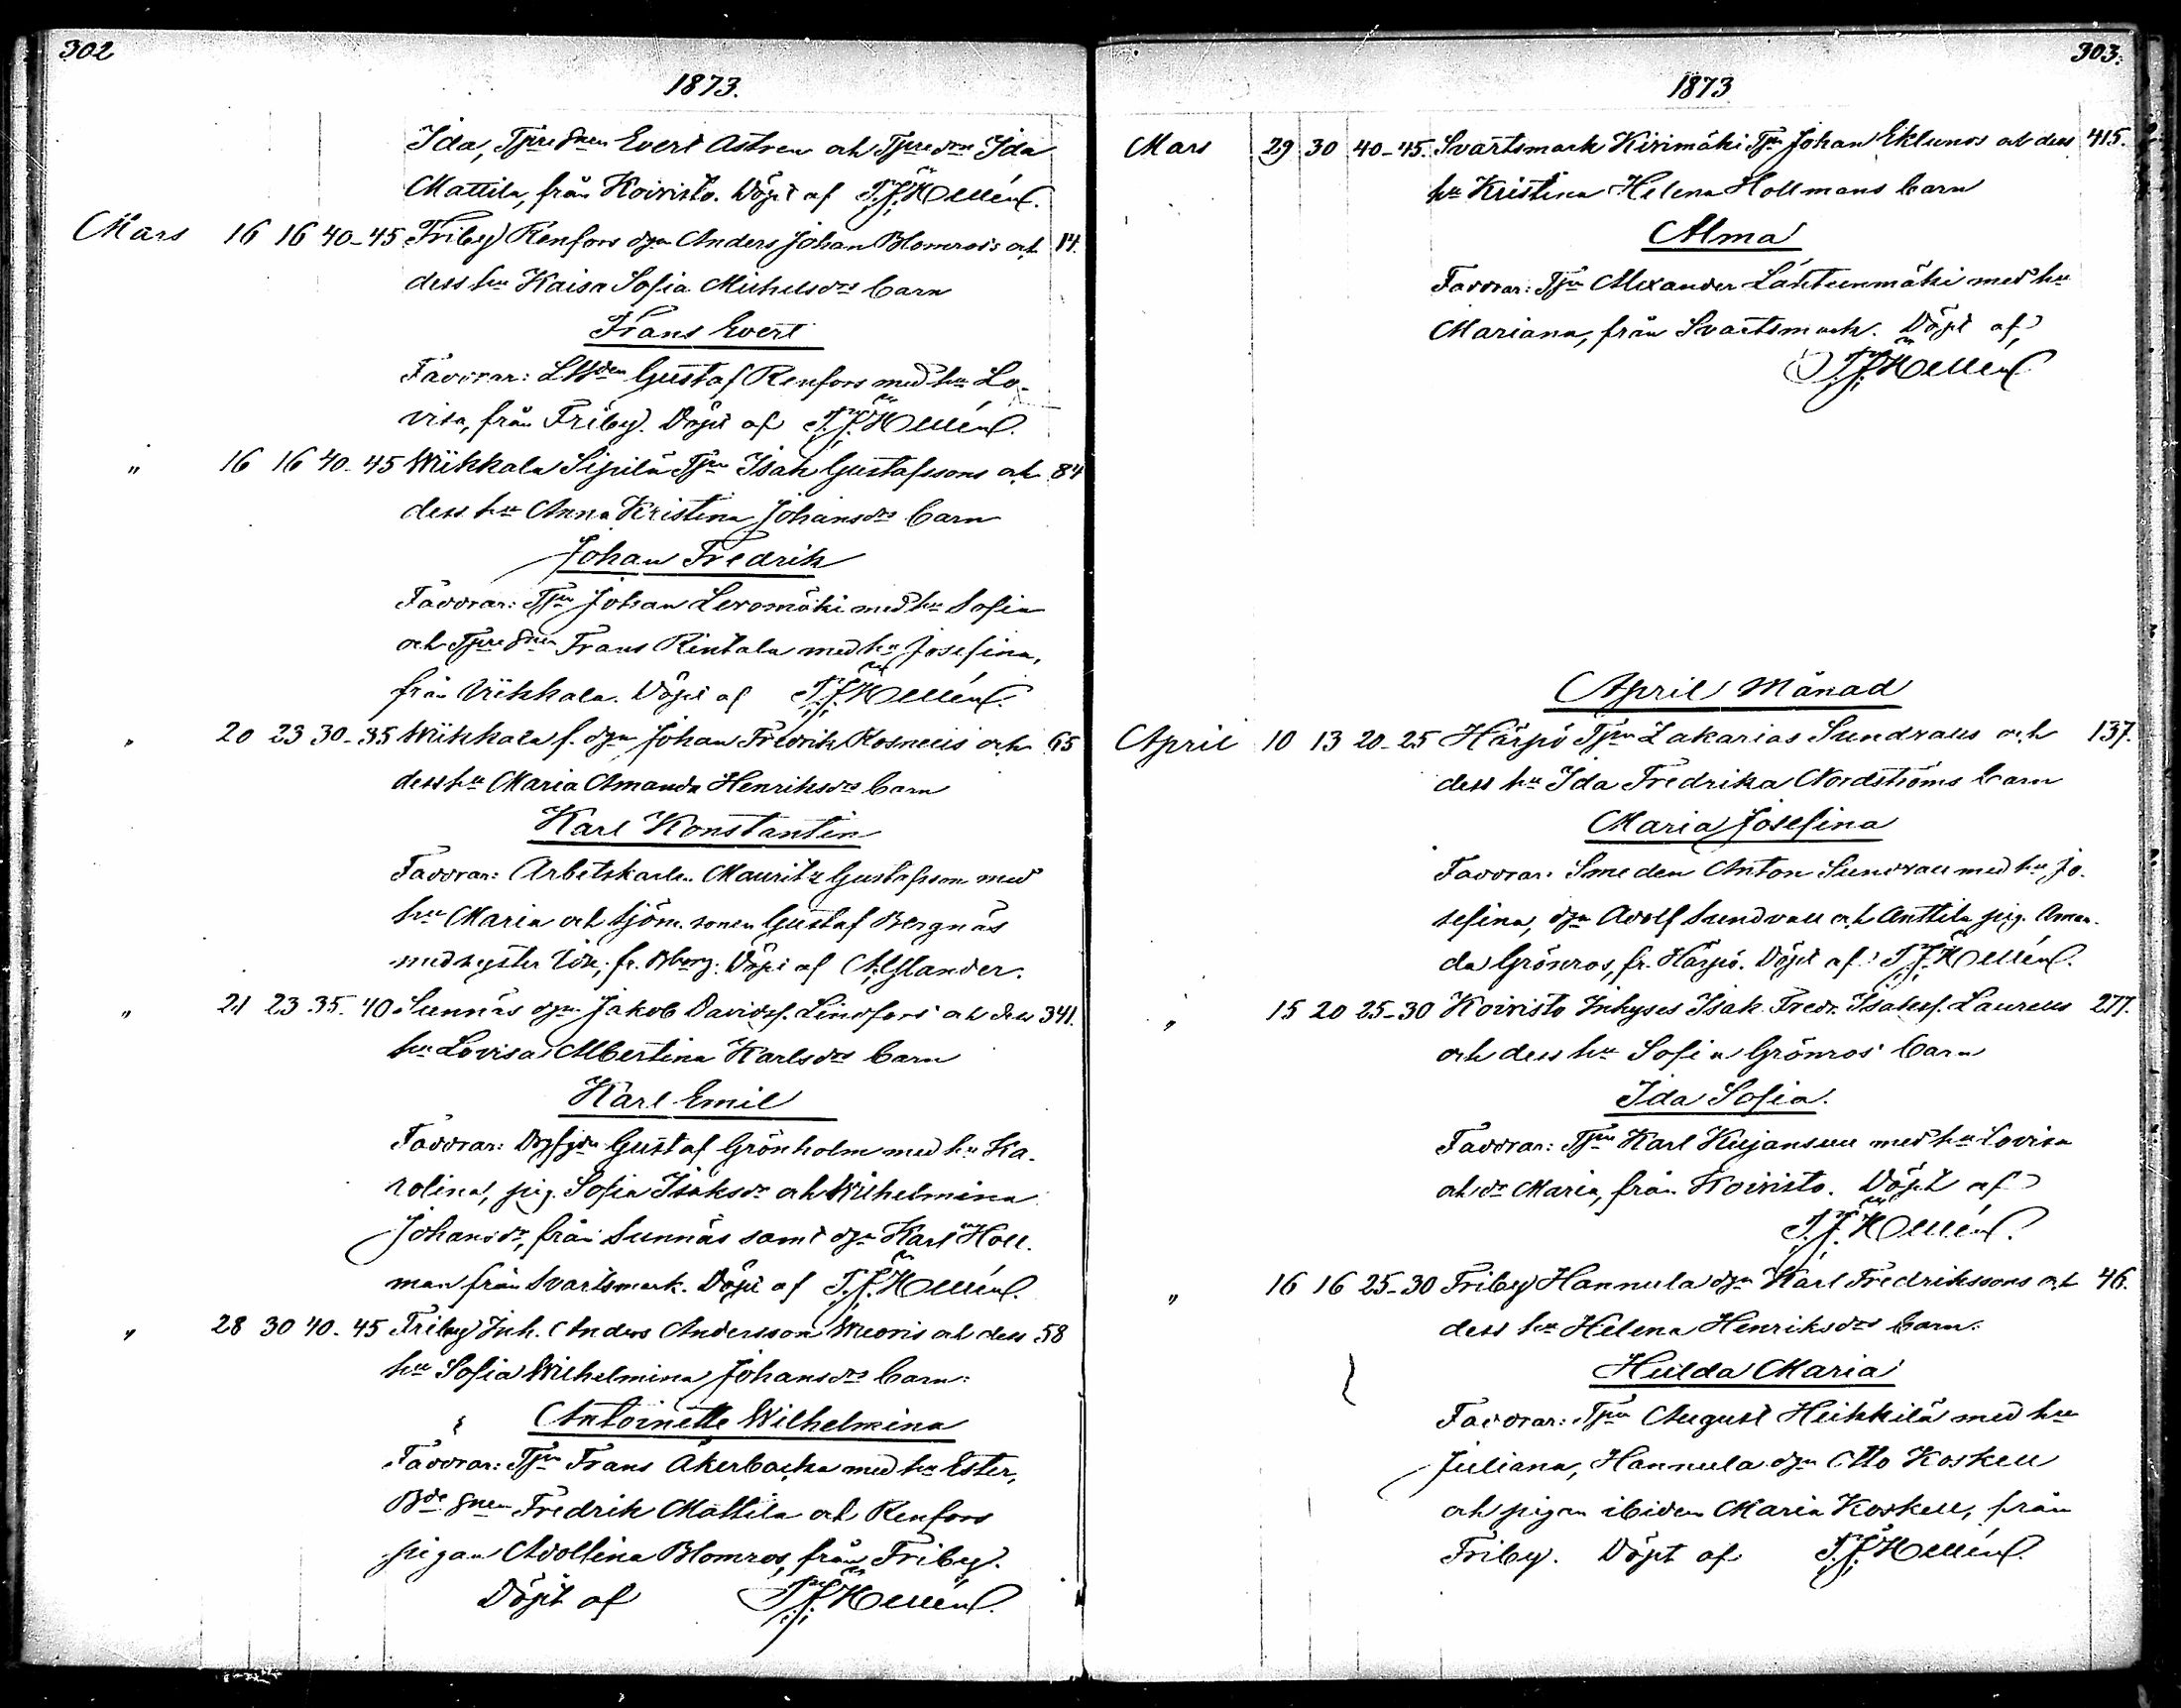 302
1873.
Ida, Tjnresnen Evert Astren och Tjnredrn Ida
Mattila, från Koivisto. Döpt af T. J. Hellén.
Mars 16 16 40-45 Friby Renfors dgn Anders Johan Blomros's och 14.
dess hu Kaisa Sofia Michelsdrs barn
Frans Evert
Faddrar: Gustaf Renfors med hu Lo-
visa, från Friby. Döpt af T. J. Hellén.
" 16 16 40-45 Wiikkala Sipilä Tjrn Isak Gustafssons och 84
dess hu Anna Kristina Johansdrs barn
Johan Fredrik
Faddrar: Tjrn Johan Levomäki med hu Sofia
och Tjnresnen Frans Rintala med hu Josefina,
från Viikkala. Döpt af T. J. Hellén.
" 20 23 30-35 Wiikkala f. dgn Johan Fredrik Rosnells och 65
dess hu Maria Amanda Henriksdrs barn
Karl Konstantin
Faddrar: Arbetskarlen Mauritz Gustafsson med
hu Maria och sjöm. sonen Gustaf Bergnäs
med syster fr. Bborg. Döpt af
" 21 23 35-40 Sunnäs dgn Jakob Davidsf. Lindfors och dess 341.
hu Lovisa Albertina Karlsdrs barn
Karl Emil
Faddrar: Gustaf Grönholm med hu Ka-
rolina, pig. Sofia Isaksdr och Wilhelmina
Johansdr, från Sunnäs samt dgn Karl Holl-
man från Svartsmark. Döpt af T. J. Hellén.
" 28 30 40-45 Friby Inh. Anders Andersson Weoris och dess 58
hu Sofia Wilhelmina Johansdrs barn:
Antoinette Wilhelmina
Faddrar: Tjrn Frans Åkerbacka med hu Ester,
Bdesnen Fredrik Mattila och Renfors
pigan Adolfina Blomros, från Friby.
Döpt af T. J. Hellén.
303.
1873
Mars 29 30 40-45. Svartsmark Kirimäki Tjrn Johan Eklunds och dess 415.
hu Kristina Helena Hollmans barn
Alma
Faddrar: Tjrn Alexander Lähteenmäki med hu
Mariana, från Svartsmark. Döpt af
T. J. Hellén
April Månad
April 10 13 20-25 Härpö Tjrn Zakarias Sundvalls och 137.
dess hu Ida Fredrika Nordströms barn
Maria Josefina
Faddrar: Smeden Anton Sundvall med hu Jo-
sefina, dgn Adolf Sundvall och Anttila pig. Aman-
da Grönros, fr. Härpö. Döpt af T. J. Hellén.
" 15 20 25-30 Koivisto Inhyses Isak Fredr. Isaksf. Laurells 277.
och dess hu Sofia Grönros' barn
Ida Sofia.
Faddrar: Tjrn Karl Kujansuu med hu Lovisa
och dr Maria, från Koivisto. Döpt af
T. J. Hellén.
" 16 16 25-30 Friby Hannula dgn Karl Fredrikssons och 46.
dess hu Helena Henriksdrs barn:
Hulda Maria
Faddrar: Tjrn August Heikkilä med hu
Juliana, Hannula dgn Otto Koskell
och pigan ibidem Maria Koskell, från
Friby. Döpt af T. J. Hellén.